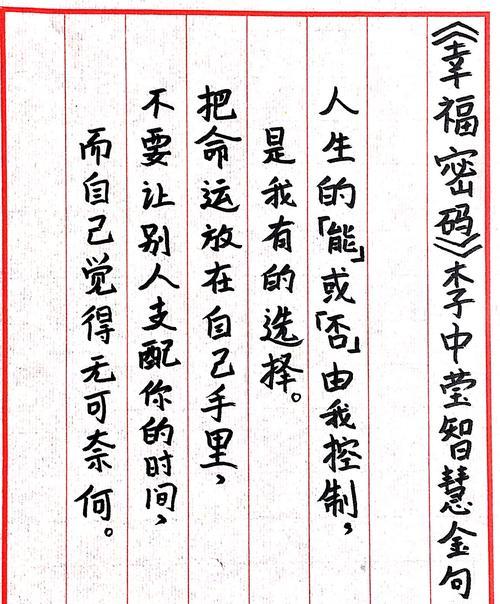 《幸福密码》李中莹智慧金句
人生的「能」或「否」由我控制，
是我有的选择。
把命运放在自己手里，
不要让别人支配你的时间，
而自己觉得无可奈何。